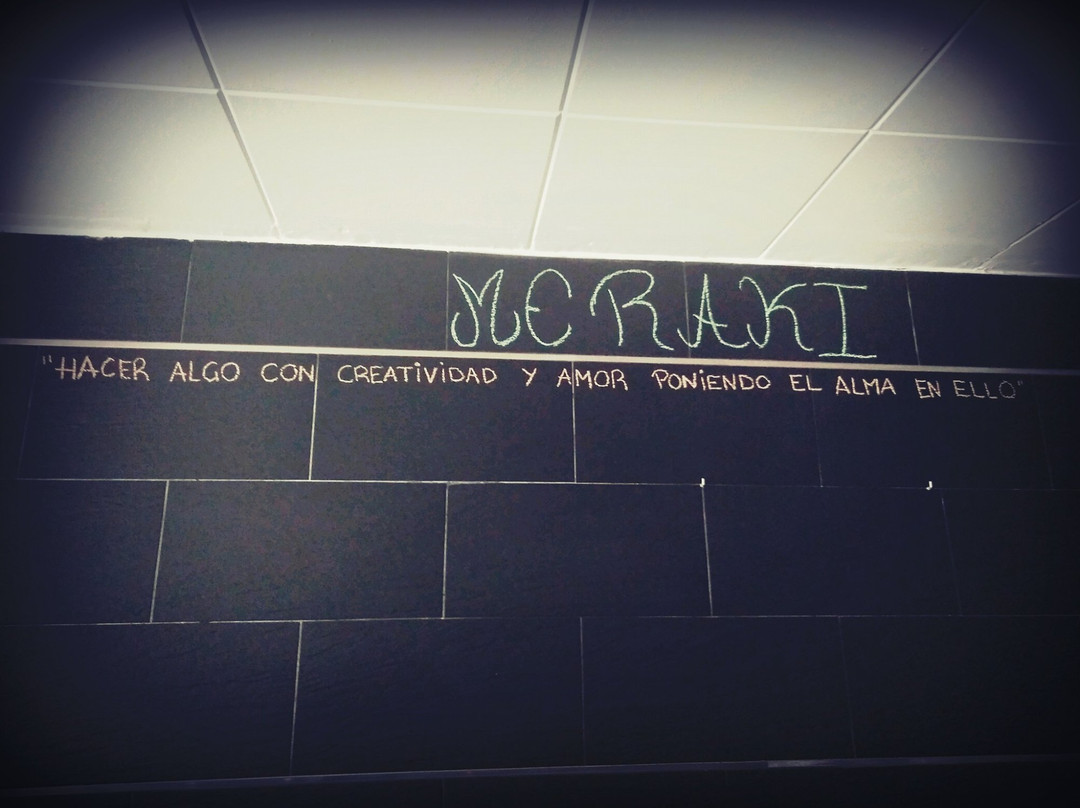 MERAKI
"HACER ALGO CON CREATIVIDAD Y AMOR PONIENDO EL ALMA EN ELLO"